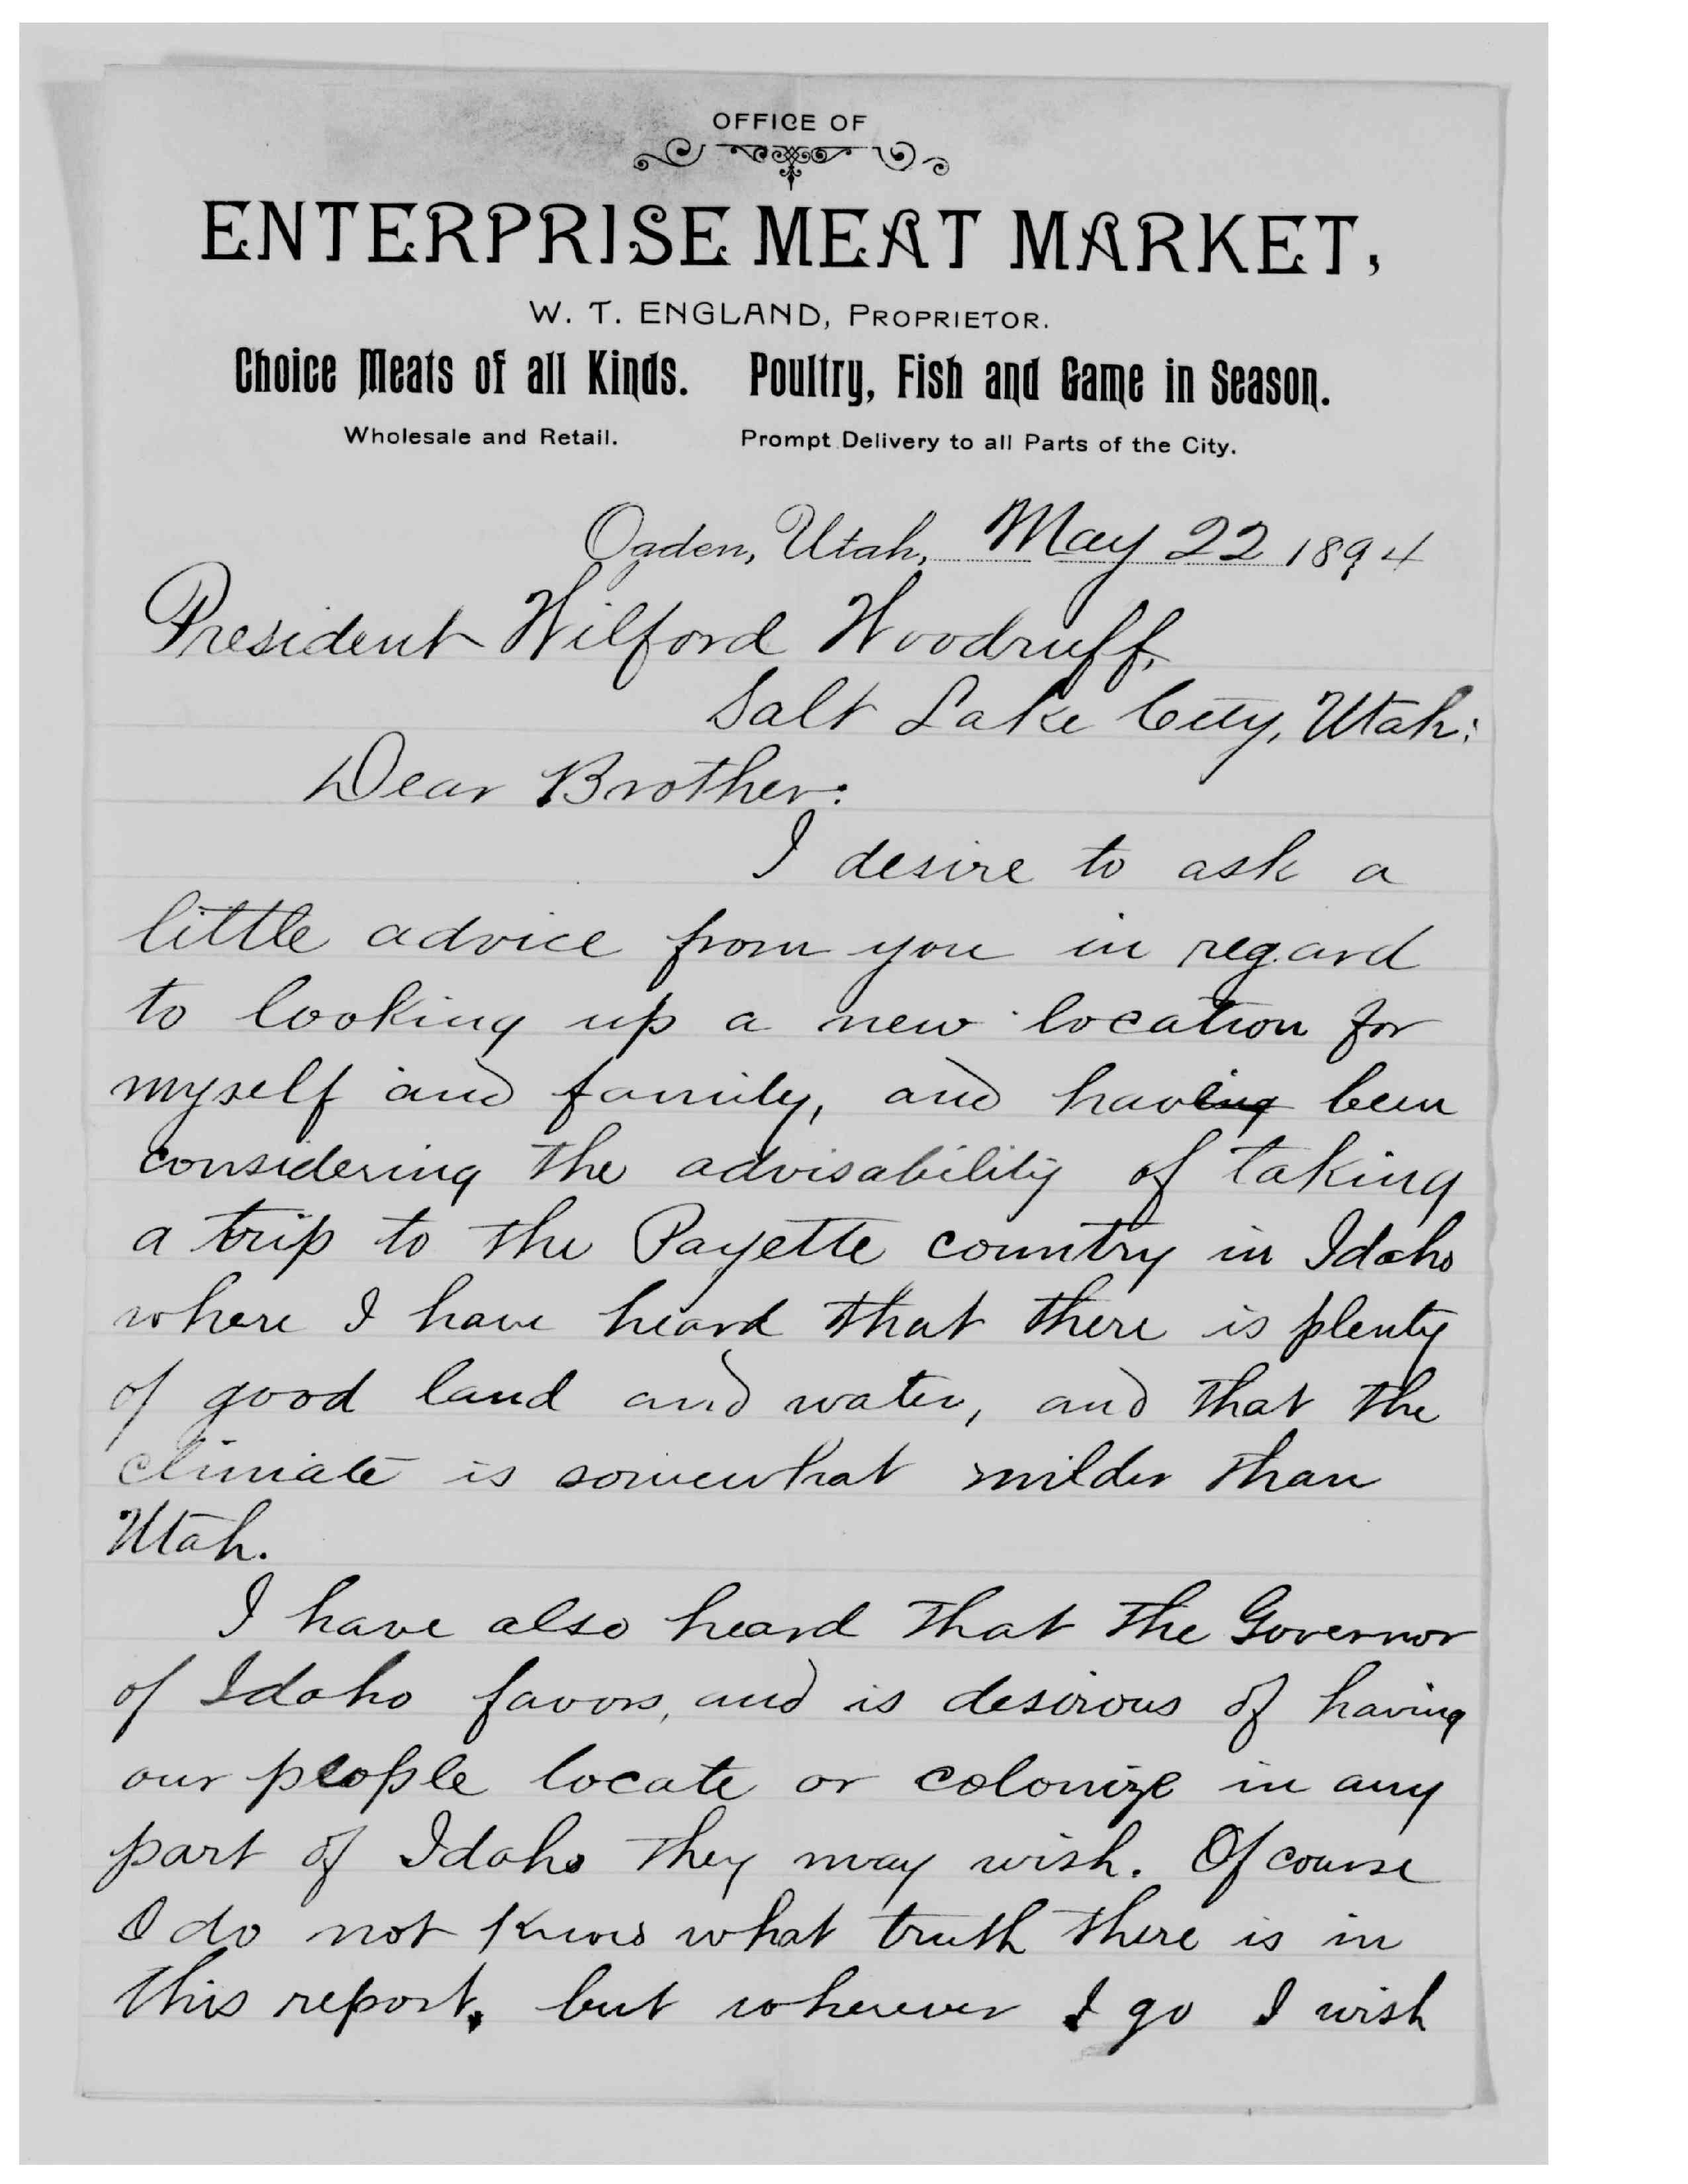 OFFICE OF
ENTERPRISE MEAT MARKET,
W. T. ENGLAND, PROPRIETOR.
Choice Meats of all Kinds. Poultry, Fish and Game in Season.
Wholesale and Retail. Prompt Delivery to all Parts of the City.
Ogden, Utah, May 22 1894
President Wilford Woodruff,
Salt Lake City, Utah:
Dear Brother:
I desire to ask a
little advice from you in regard
to looking up a new location for
myself and family, and having been
considering the advisability of taking
a trip to the Payette country in Idaho
where I have heard that there is plenty
of good land and water, and that the
climate is somewhat milder than
Utah.
I have also heard that the Governor
of Idaho favors, and is desirous of having
our people locate or colonize in any
part of Idaho they may wish. Of course
I do not know what truth there is in
this report, but wherever I go I wish